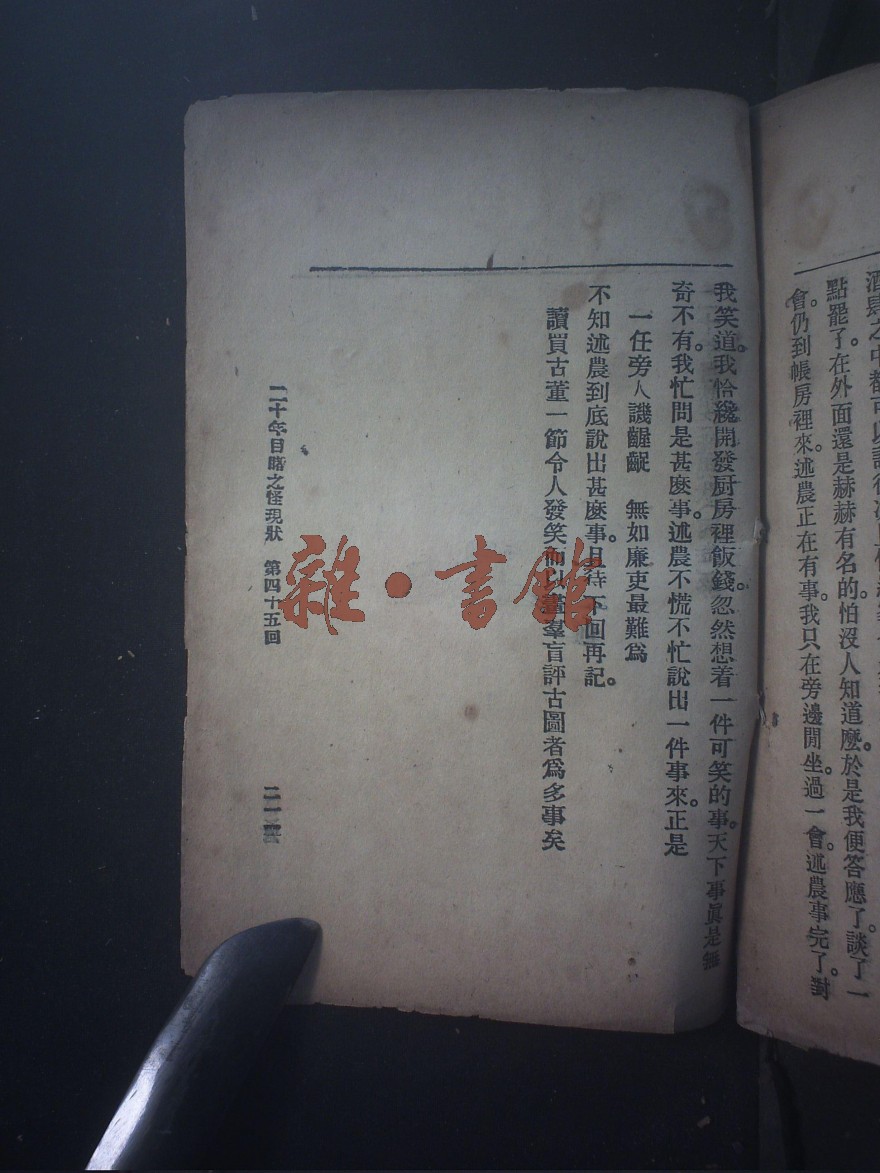 酒肆之中都可以
點罷了。在外面還是赫赫有名的。怕沒人知道麼。於是我便答應了。談了一
會。仍到帳房裡來。述農正在有事。我只在旁邊閒坐。過一會。述農事完了。對
我笑道。我恰纔開發厨房裡飯錢。忽然想着一件可笑的事。天下事眞是無
奇不有。我忙問是甚麽事。述農不慌不忙說出一件事來。正是
一任旁人譏齷齪　無如廉吏最難爲
不知述農到底說出甚麽事。且待下回再記。
讀買古董一節令人發笑而以畫羣盲評古圖者爲多事矣
二十年目睹之怪現狀　第四十五回
二一
雜·書館